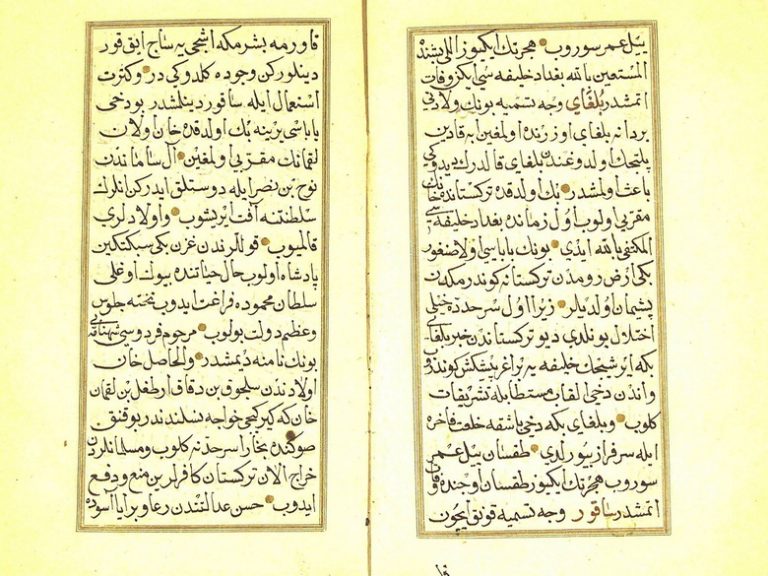 ییل عمر سوروب هجرتك ایكیوز اللی بشنده
المستعین بالله بغداد خلیفه سی ایكن وفات
اتمشدر بلغای وجه تسمیه بونك ولادتی
بر دانه بلغای اوزرنده اولمغین به قادین
پلتجك اولدوغنده بلغای قالدرك دیدوكی
باعث اولمشدر بك اولدقده تركستانده خانك
مقربی اولوب اول زمانده بغداد خلیفه سی
المكتفی بالله ایدی بونك باباسی اولا صنغور
بكی ارض رومدن تركستانه كوندرمكدن
پشیمان اولدیلر زیرا اول سرحدده خیلی
اختلال بولندی دیو تركستاندن خبر بلغای
بكه ایرشیجك خلیفه یه براغر پیشكش كوندروب
واندن دخی القاب مستطابله تشریفات
كلوب وبلغای بكه دخی باشقه خلعت فاخره
ایله سرفراز بیورلدی طقسان ییل عمر
سوروب هجرتك ایكیوز طقسان اوچنده وفات
اتمشدر ساقور وجه تسمیه قونق ایچون
قاورمه بشرمكه اشجی یه ساج ابق قور
دینلوركن وجوده كلدوكی در وكثرت
استعمال ایله ساقور دینلمشدر بو دخی
باباسی یرینه بك اولدقده خان اولان
لقمانك مقربی اولمغین آل ساماندن
نوح بن نصر ایله دوستلق ایدركن انلرك
سلطنتنه آفت ایریشوب واولادلری
قالمیوب قوللرندن غزن بكی سبكتكین
پادشاه اولوب حال حیاتنده بیوك اوغلی
سلطان محموده فراغت ایدوب تخته جلوس
وعظیم دولت بولوب مرحوم فردوسی شهنامه یی
بونك نامنه دیمشدر والحاصل خان
اولادندن سلجوق بن دقاق ارطغل بن لقمان
خان كه كیركیجی خواجه نسلندندر بو قنق
صوكنده بخارا سرحدنه كلوب ومسلمانلردن
خراج الان تركستان كافرلرین منع ودفع
ایدوب حسن عدالتندن رعا وبرایا آسوده